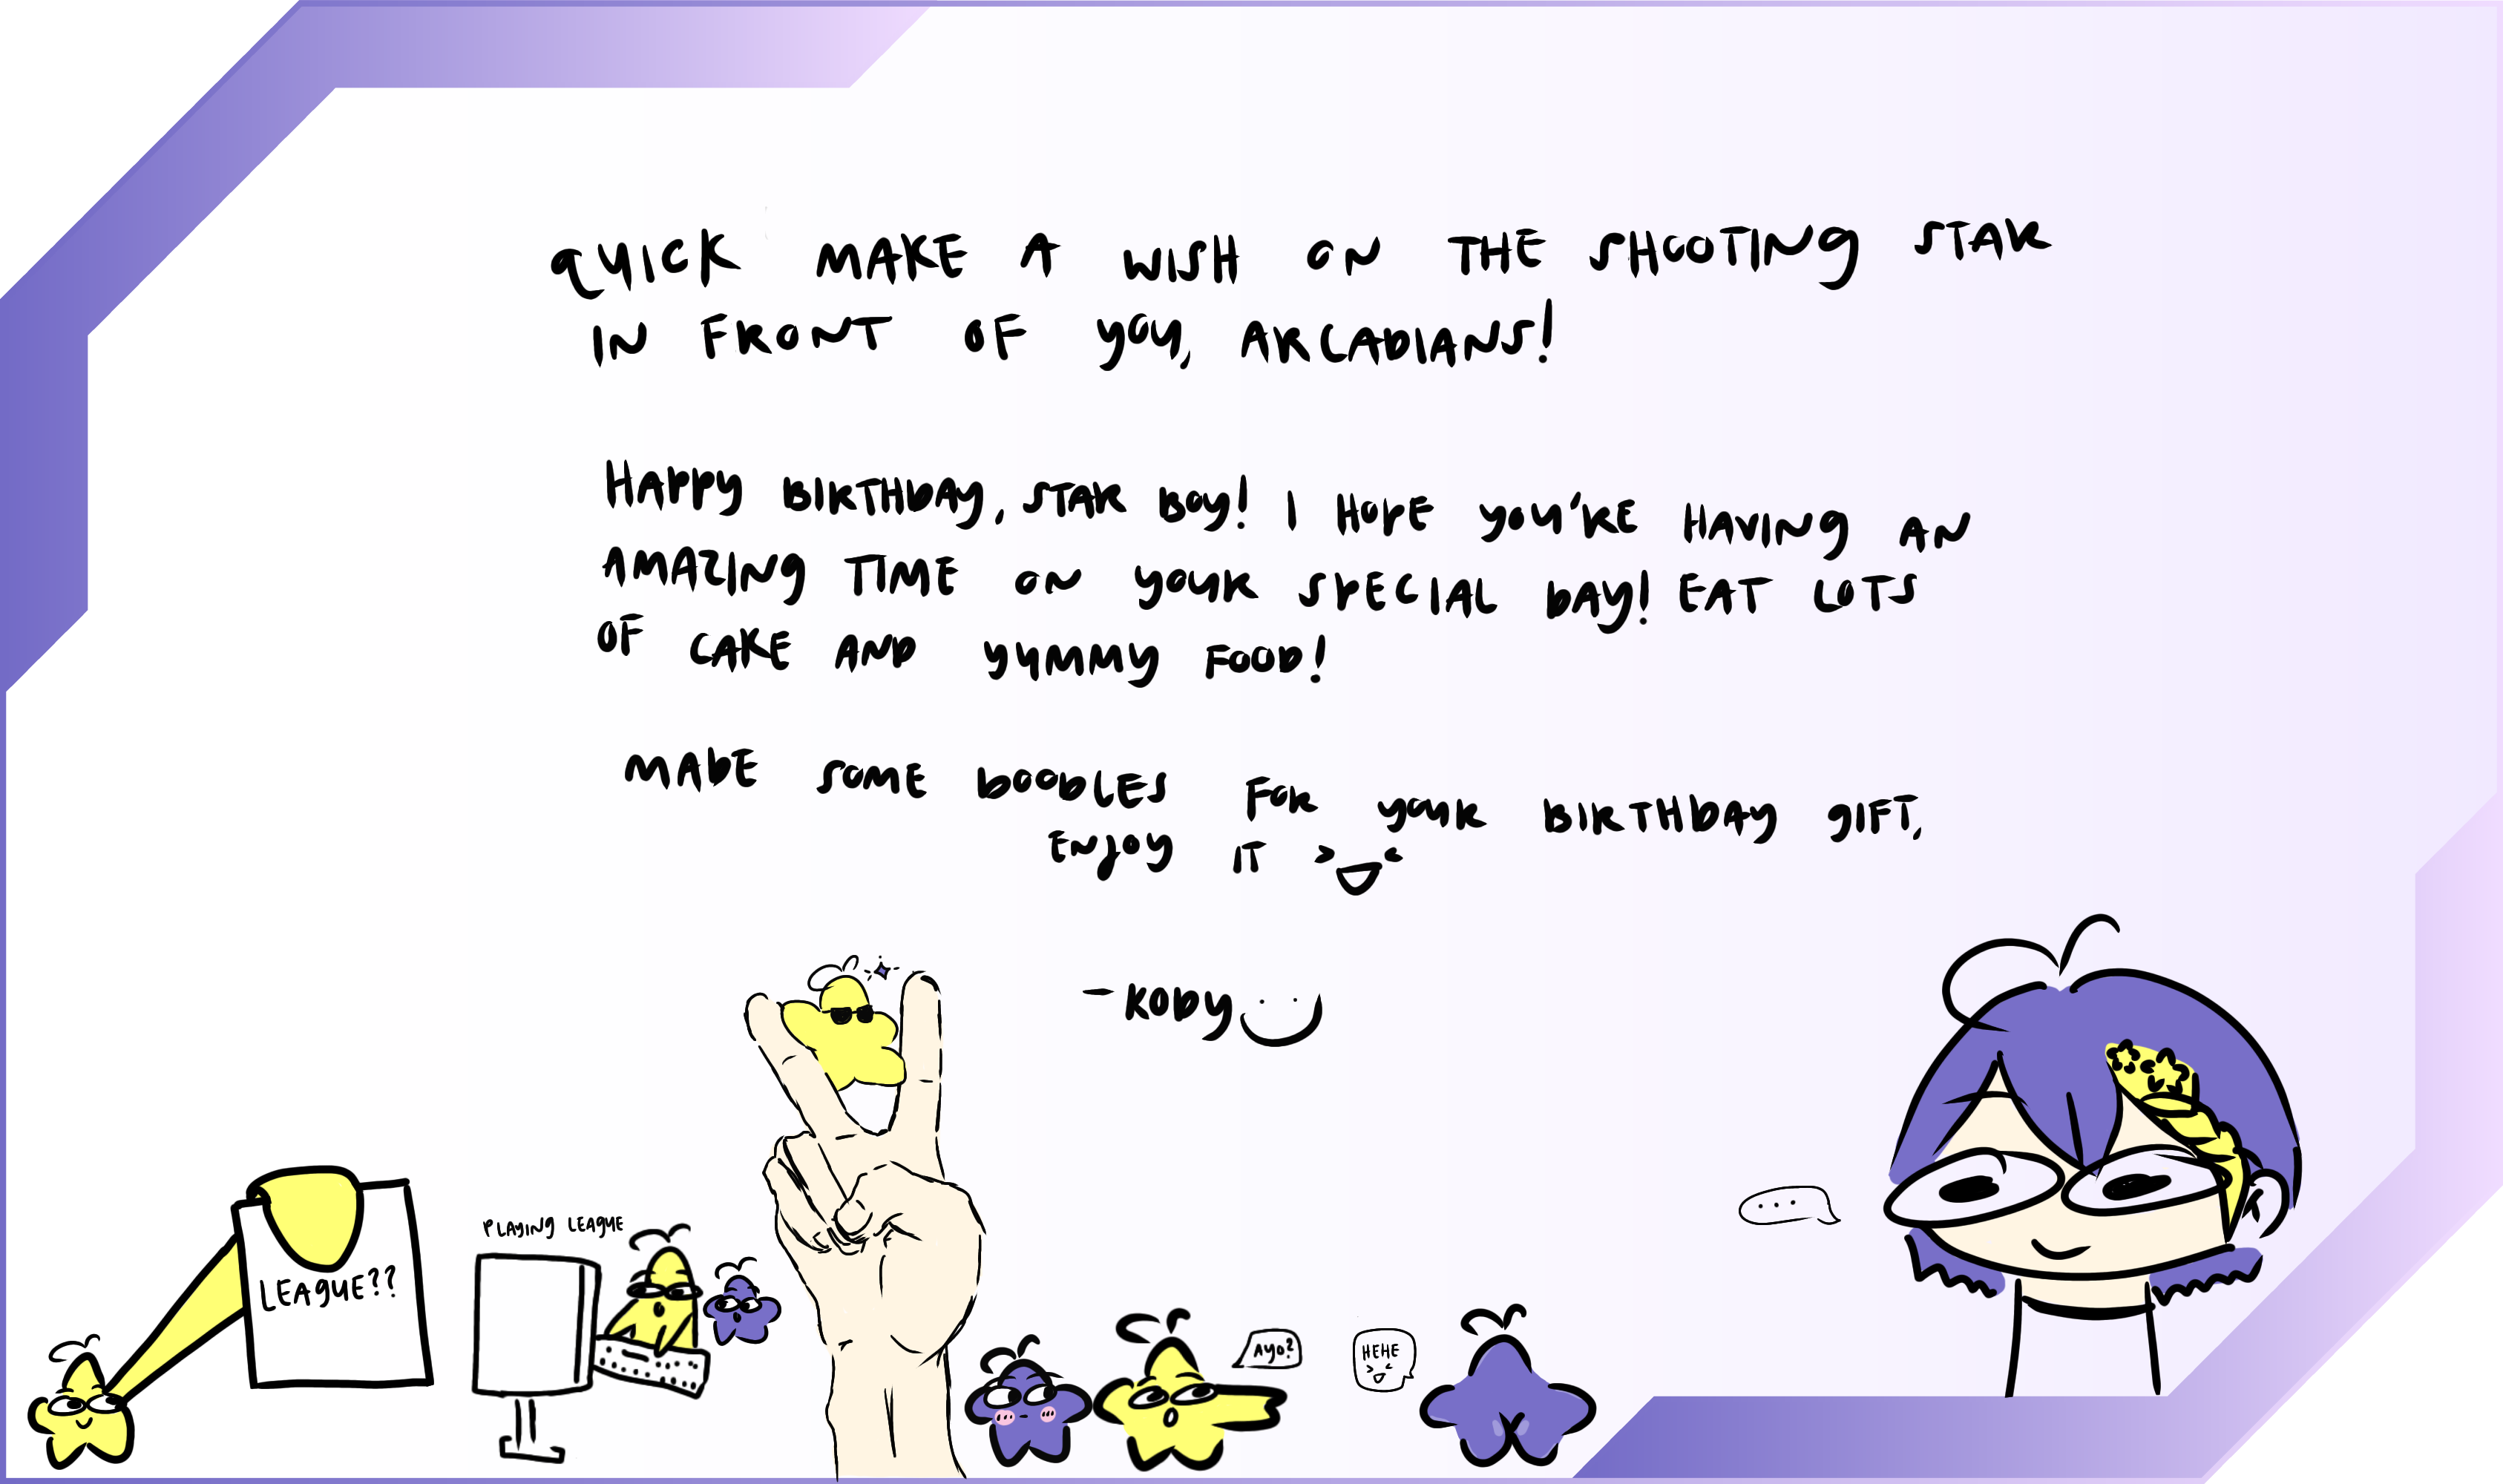 QUICK MAKE A WISH ON THE SHOOTING STAR
IN FRONT OF YOU, ARCADIANS!
HAPPY BIRTHDAY, STAR BOY! I HOPE YOU'RE HAVING AN
AMAZING TIME ON YOUR SPECIAL DAY! EAT LOTS
OF CAKE AND YUMMY FOOD!
MADE SOME DOODLES FOR YOUR BIRTHDAY GIFT,
ENJOY IT
-KODY
...
PLAYING LEAGUE
LEAGUE??
AYO?
HEHE